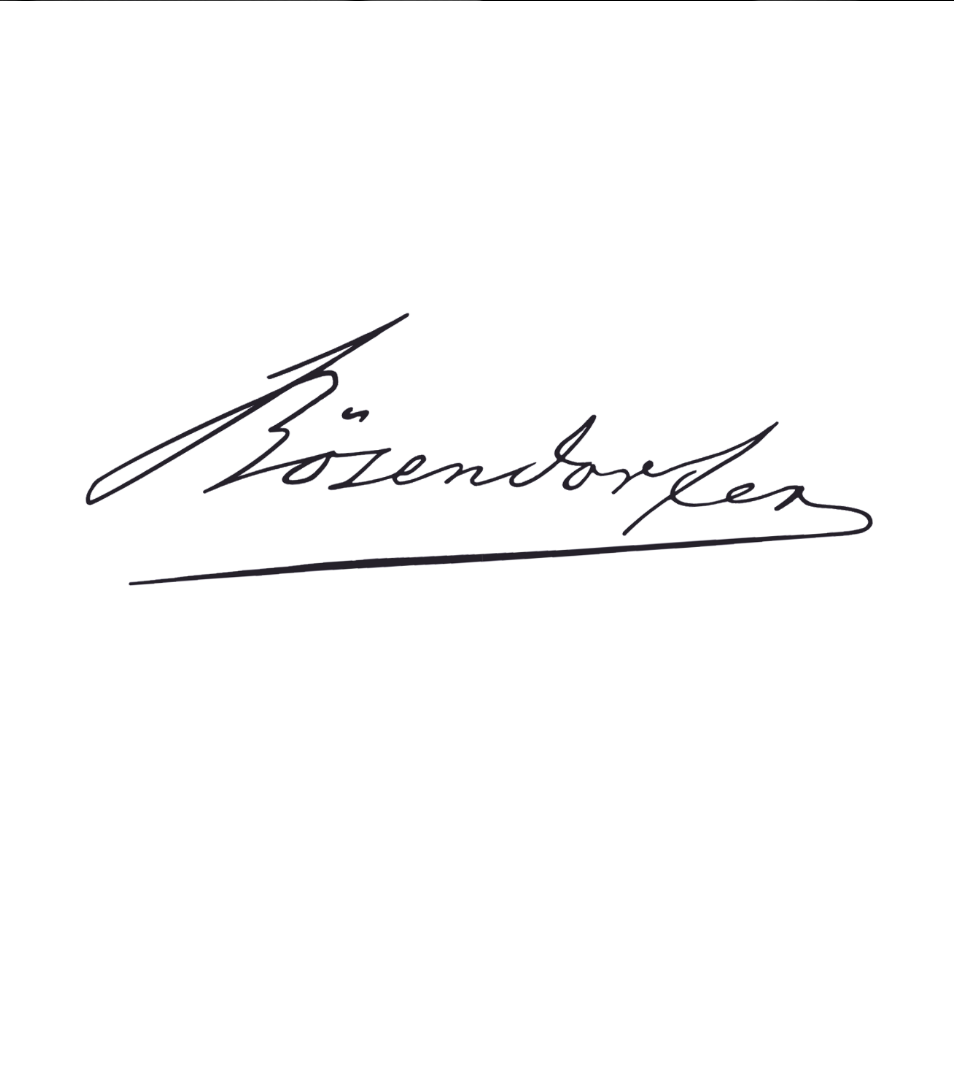 Bösendorfer